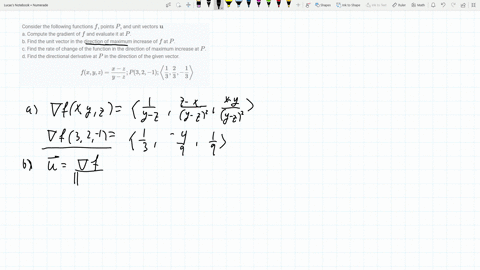 Lucas's Notebook • Numerade
Consider the following functions f, points P, and unit vectors u
a. Compute the gradient of f and evaluate it at P.
b. Find the unit vector in the direction of maximum increase of f at P.
c. Find the rate of change of the function in the direction of maximum increase at P.
d. Find the directional derivative at P in the direction of the given vector.
f(x, y, z) = (x − z)/(y − z); P(3, 2, −1); ⟨1/3, 2/3, −1/3⟩
a) ∇f(x,y,z) = ⟨1/(y-z), (z-x)/(y-z)², (x-y)/(y-z)²⟩
∇f(3,2,-1) = ⟨1/3, -4/9, 1/9⟩
b) u⃗ = ∇f/||